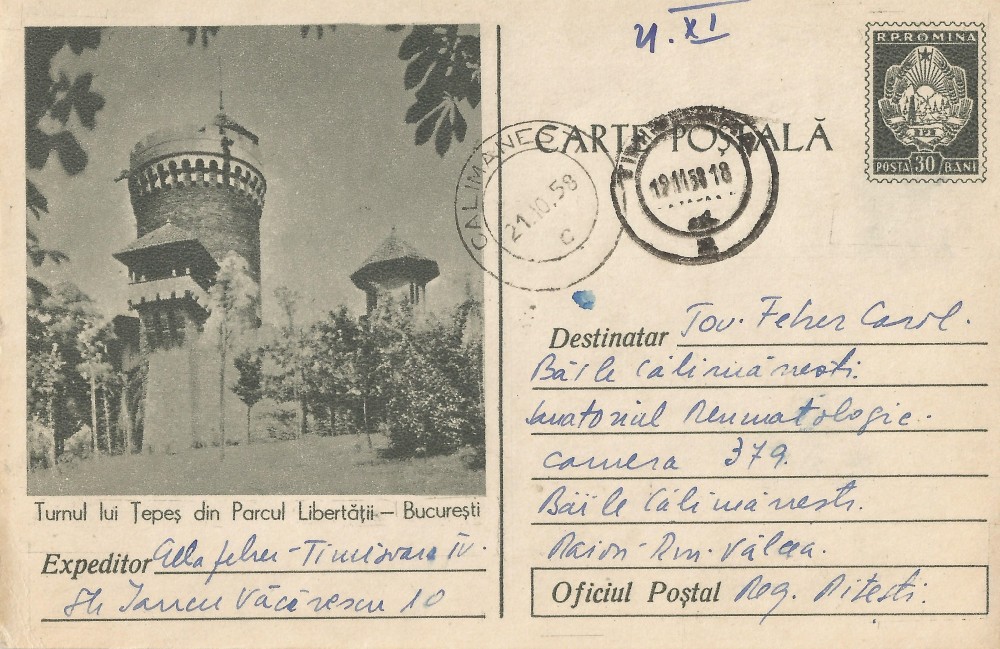 21. XI
R.P.ROMINA
POSTA 30 BANI
CARTE POȘTALĂ
CALIMANES
21.10.58
C
18
Destinatar Tov. Feher Carol.
Băile Călimănești.
Reumatologic.
camera 379.
Băile Călimănesti.
Raion Rm. Vâlcea.
Oficiul Poștal Reg. Pitești.
Turnul lui Țepeș din Parcul Libertății – București
Expeditor Feher - Timisoara IV.
Str Iancu Văcărescu 10